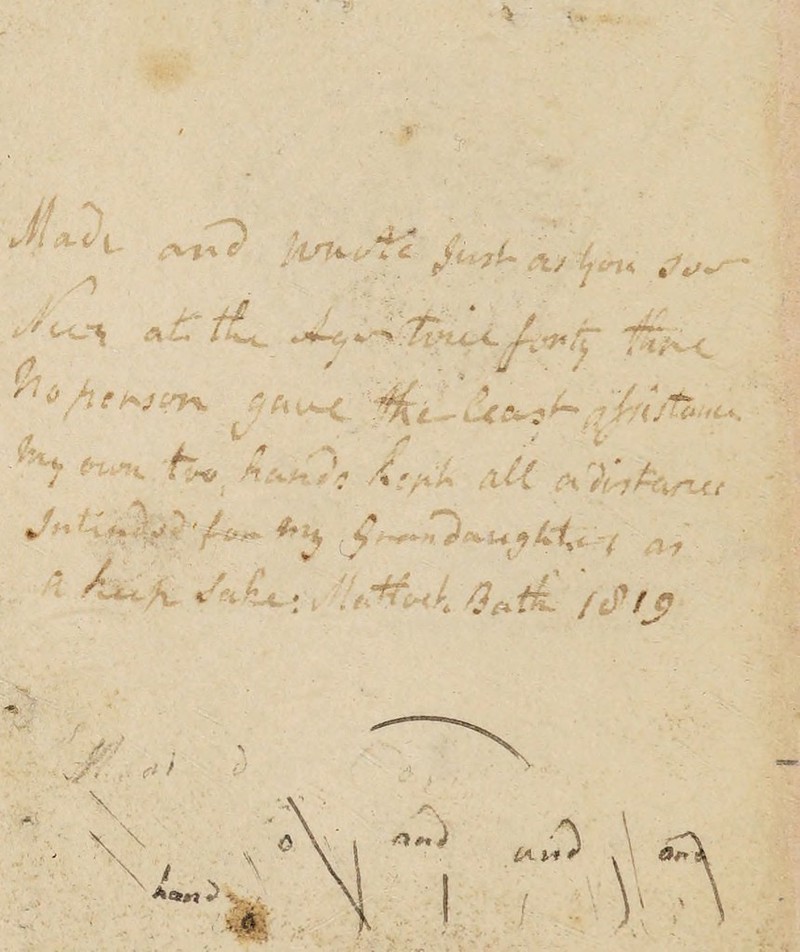 Made and wrote Just as you see
Near at the Age twice forty three
No person gave the least assistance
My own too, hands kept all a distance
Intinded for my Grandaughter as
a keep sake: Mattock Bath 1819
o and and and
hand